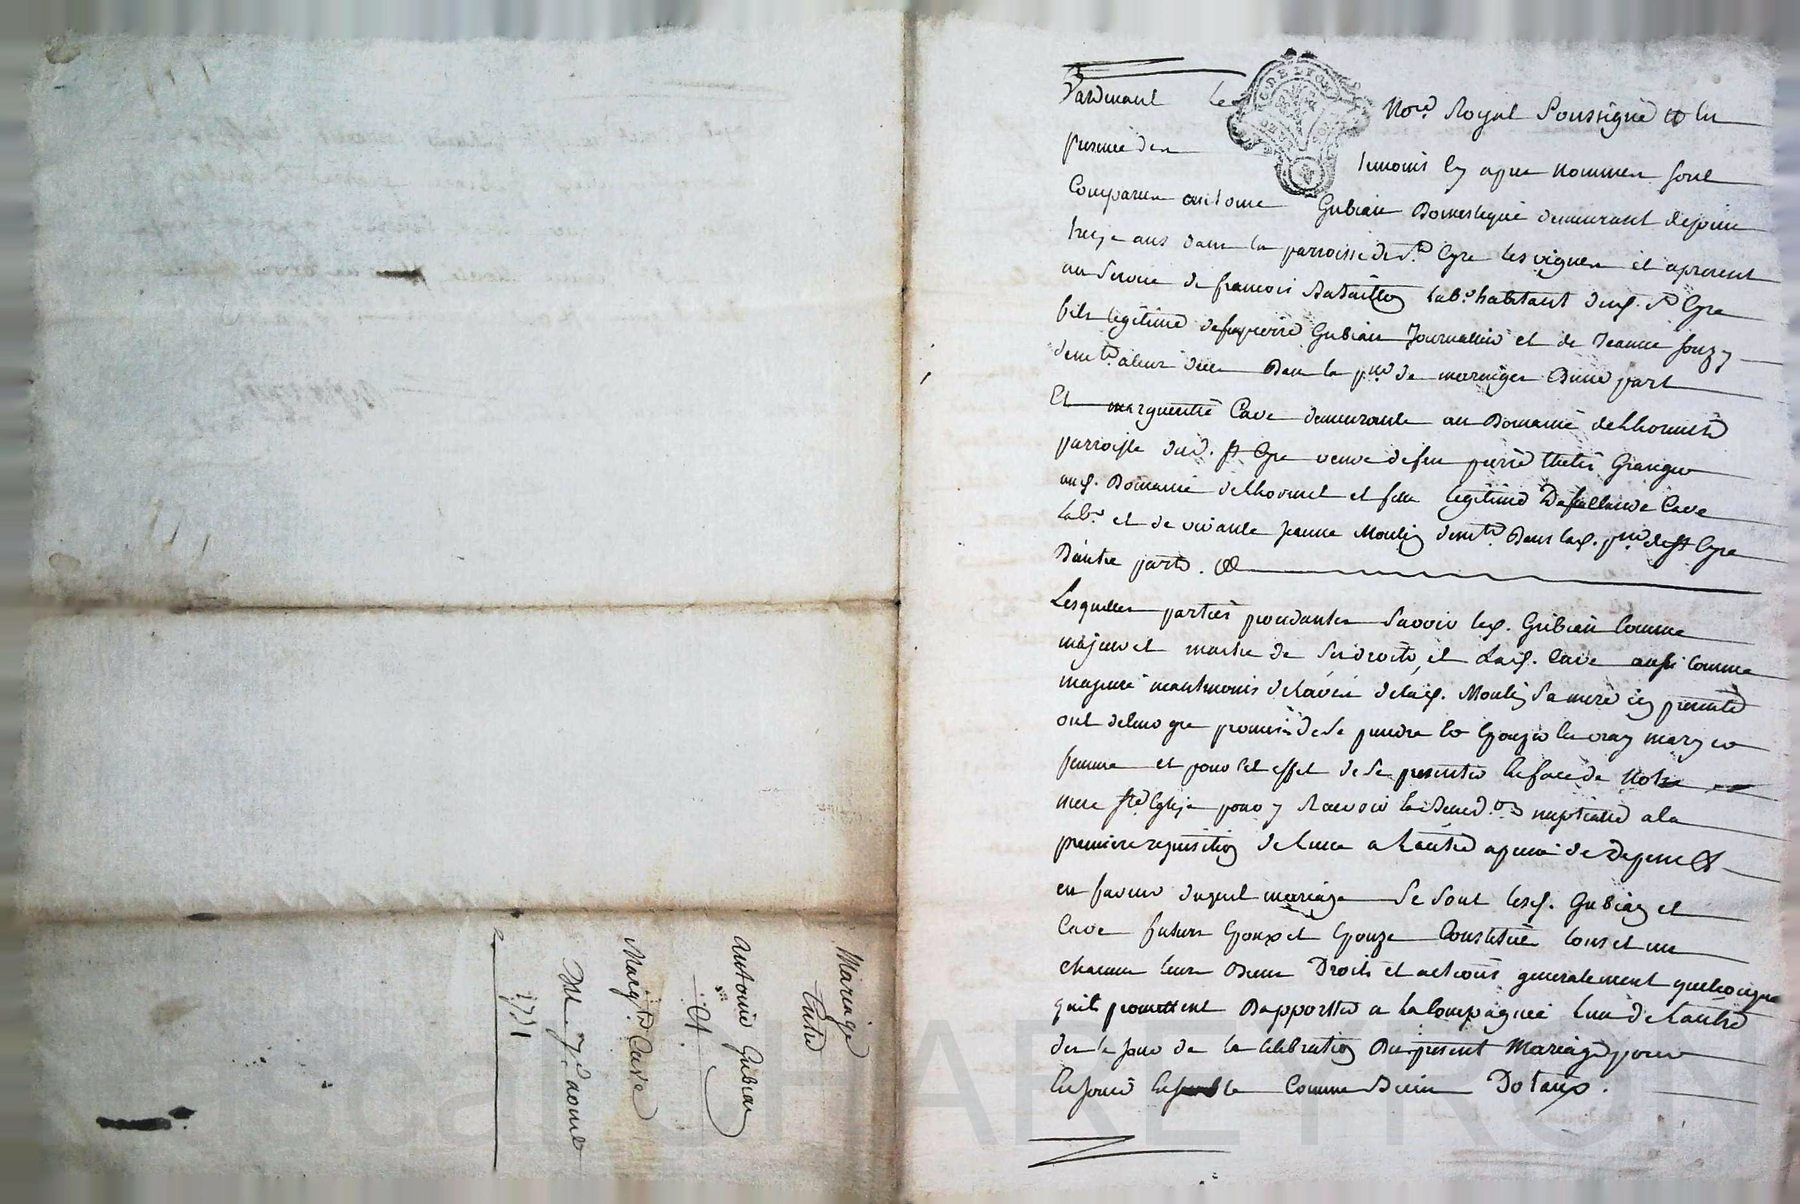 Mariage
Entre
Antoine Gubian
et
Marg.te Cave
Du 7.e aoust
1771
Pardevant le Not.re Royal Soussigné et en
presence des temoins cy apres nommés sont
Comparus antoine Gubian Domestique demeurant depuis
treize ans dans la parroisse de St. Cyre les vignes et apresent
au Service de francois Bataillon lab.r habitant dud. St Cyre
fils legitime de feu pierre Gubian Journallier et de Jeanne
dem.te Dans la p.sse de D'une part
Et margueritte Cave demeurante au Domaine de Lhormet
parroisse dud. St Cyre veuve de feu pierre Granger
aud. Domaine de Lhormet et fille legitime Cave
lab.r et de vivante Jeanne Moulin dem.te Dans lad. p.sse de St Cyre
D'autre part. &
Lesquelles parties procedantes Savoir led. Gubian Comme
majeur et maitre de Ses droits, et Lad. Cave aussi Comme
majeure neantmoins de l'avis de lad. Moulin Sa mere icy presente
ont de leur gré promis de Se prendre En Epoux le vray mary et
femme et pour Cet effet de Se presenter En face de Notre
mere Ste Eglize pour y Recevoir la Bened.on nuptialle a la
premiere requisition de L'une a Lautre apeine de Depens &
en faveur duquel mariage Se Sont lesd. Gubian et
Cave futurs Epoux et Epouze Constitué tous et un
chacun leurs Biens Droits et actions generalement quelconque
quils promettent D'apporter a la Compagnie Lun de Lautre
des le jour de la Celebration Du present Mariage pour
Comme Biens Dotaux.